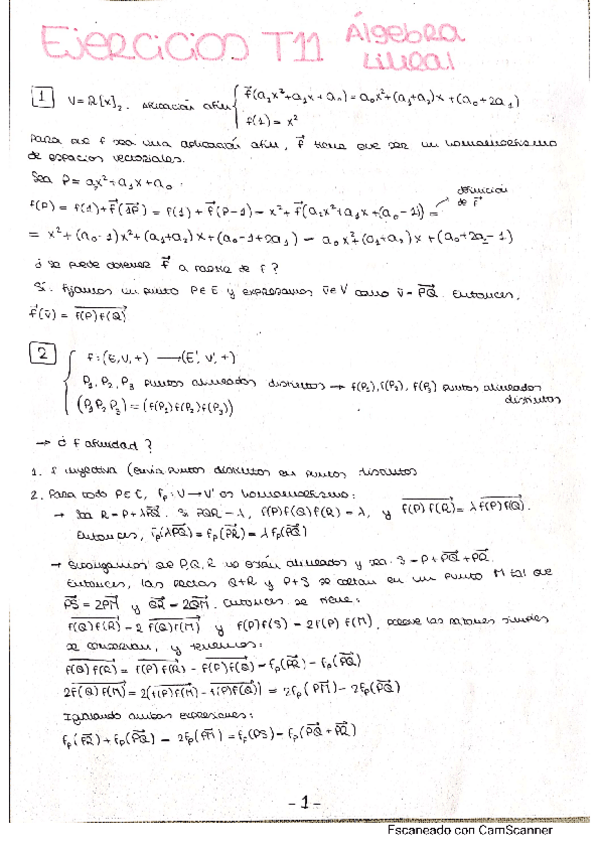 Ejercicios T11 Álgebra Lineal
1 V=R[x]₂. Aplicación afín { f⃗(a₂x²+a₁x+a₀)=a₀x²+(a₁+a₂)x+(a₀+2a₁)
f(1)=x²
Para que f sea una aplicación afín, f⃗ tiene que ser un homomorfismo
de espacios vectoriales.
Sea P=a₂x²+a₁x+a₀.
definición de f⃗
f(P)=f(1)+f⃗(1P)=f(1)+f⃗(P-1)=x²+f⃗(a₂x²+a₁x+(a₀-1))=
=x²+(a₀-1)x²+(a₁+a₂)x+(a₀-1+2a₁)=a₀x²+(a₁+a₂)x+(a₀+2a₁-1)
¿se puede obtener f⃗ a partir de f?
Sí. Fijamos un punto P∈E y expresamos v̄∈V como v̄=PQ. Entonces,
f⃗(v̄)=f(P)f(Q)
2 { f:(E,V,+)→(E',V',+)
P₁,P₂,P₃ puntos alineados distintos → f(P₁),f(P₂),f(P₃) puntos alineados
distintos
(P₁P₂P₃)=(f(P₁)f(P₂)f(P₃))
→ ¿f afinidad?
1. f inyectiva (envía puntos distintos en puntos distintos
2. Para todo P∈E, fₚ:V→V' es homomorfismo:
→ Sea R=P+λPQ. Si PQR=λ, f(P)f(Q)f(R)=λ, y f(P)f(R)=λf(P)f(Q).
Entonces, fₚ(λPQ)=fₚ(PR)=λfₚ(PQ)
→ Supongamos que P,Q,R no están alineados y sea S=P+PQ+PR.
Entonces, las rectas Q+R y P+S se cortan en un punto M tal que
PS=2PM y QR=2QM. Entonces se tiene:
f(Q)f(R)=2f(Q)f(M) y f(P)f(S)=2f(P)f(M), porque las razones simples
se conservan, y tenemos:
f(Q)f(R)=f(P)f(R)-f(P)f(Q)=fₚ(PR)-fₚ(PQ)
2f(Q)f(M)=2(f(P)f(M)-f(P)f(Q))=2fₚ(PM)-2fₚ(PQ)
Igualando ambas expresiones:
fₚ(PR)+fₚ(PQ)=2fₚ(PM)=fₚ(PS)=fₚ(PQ+PR)
-1-
Escaneado con CamScanner